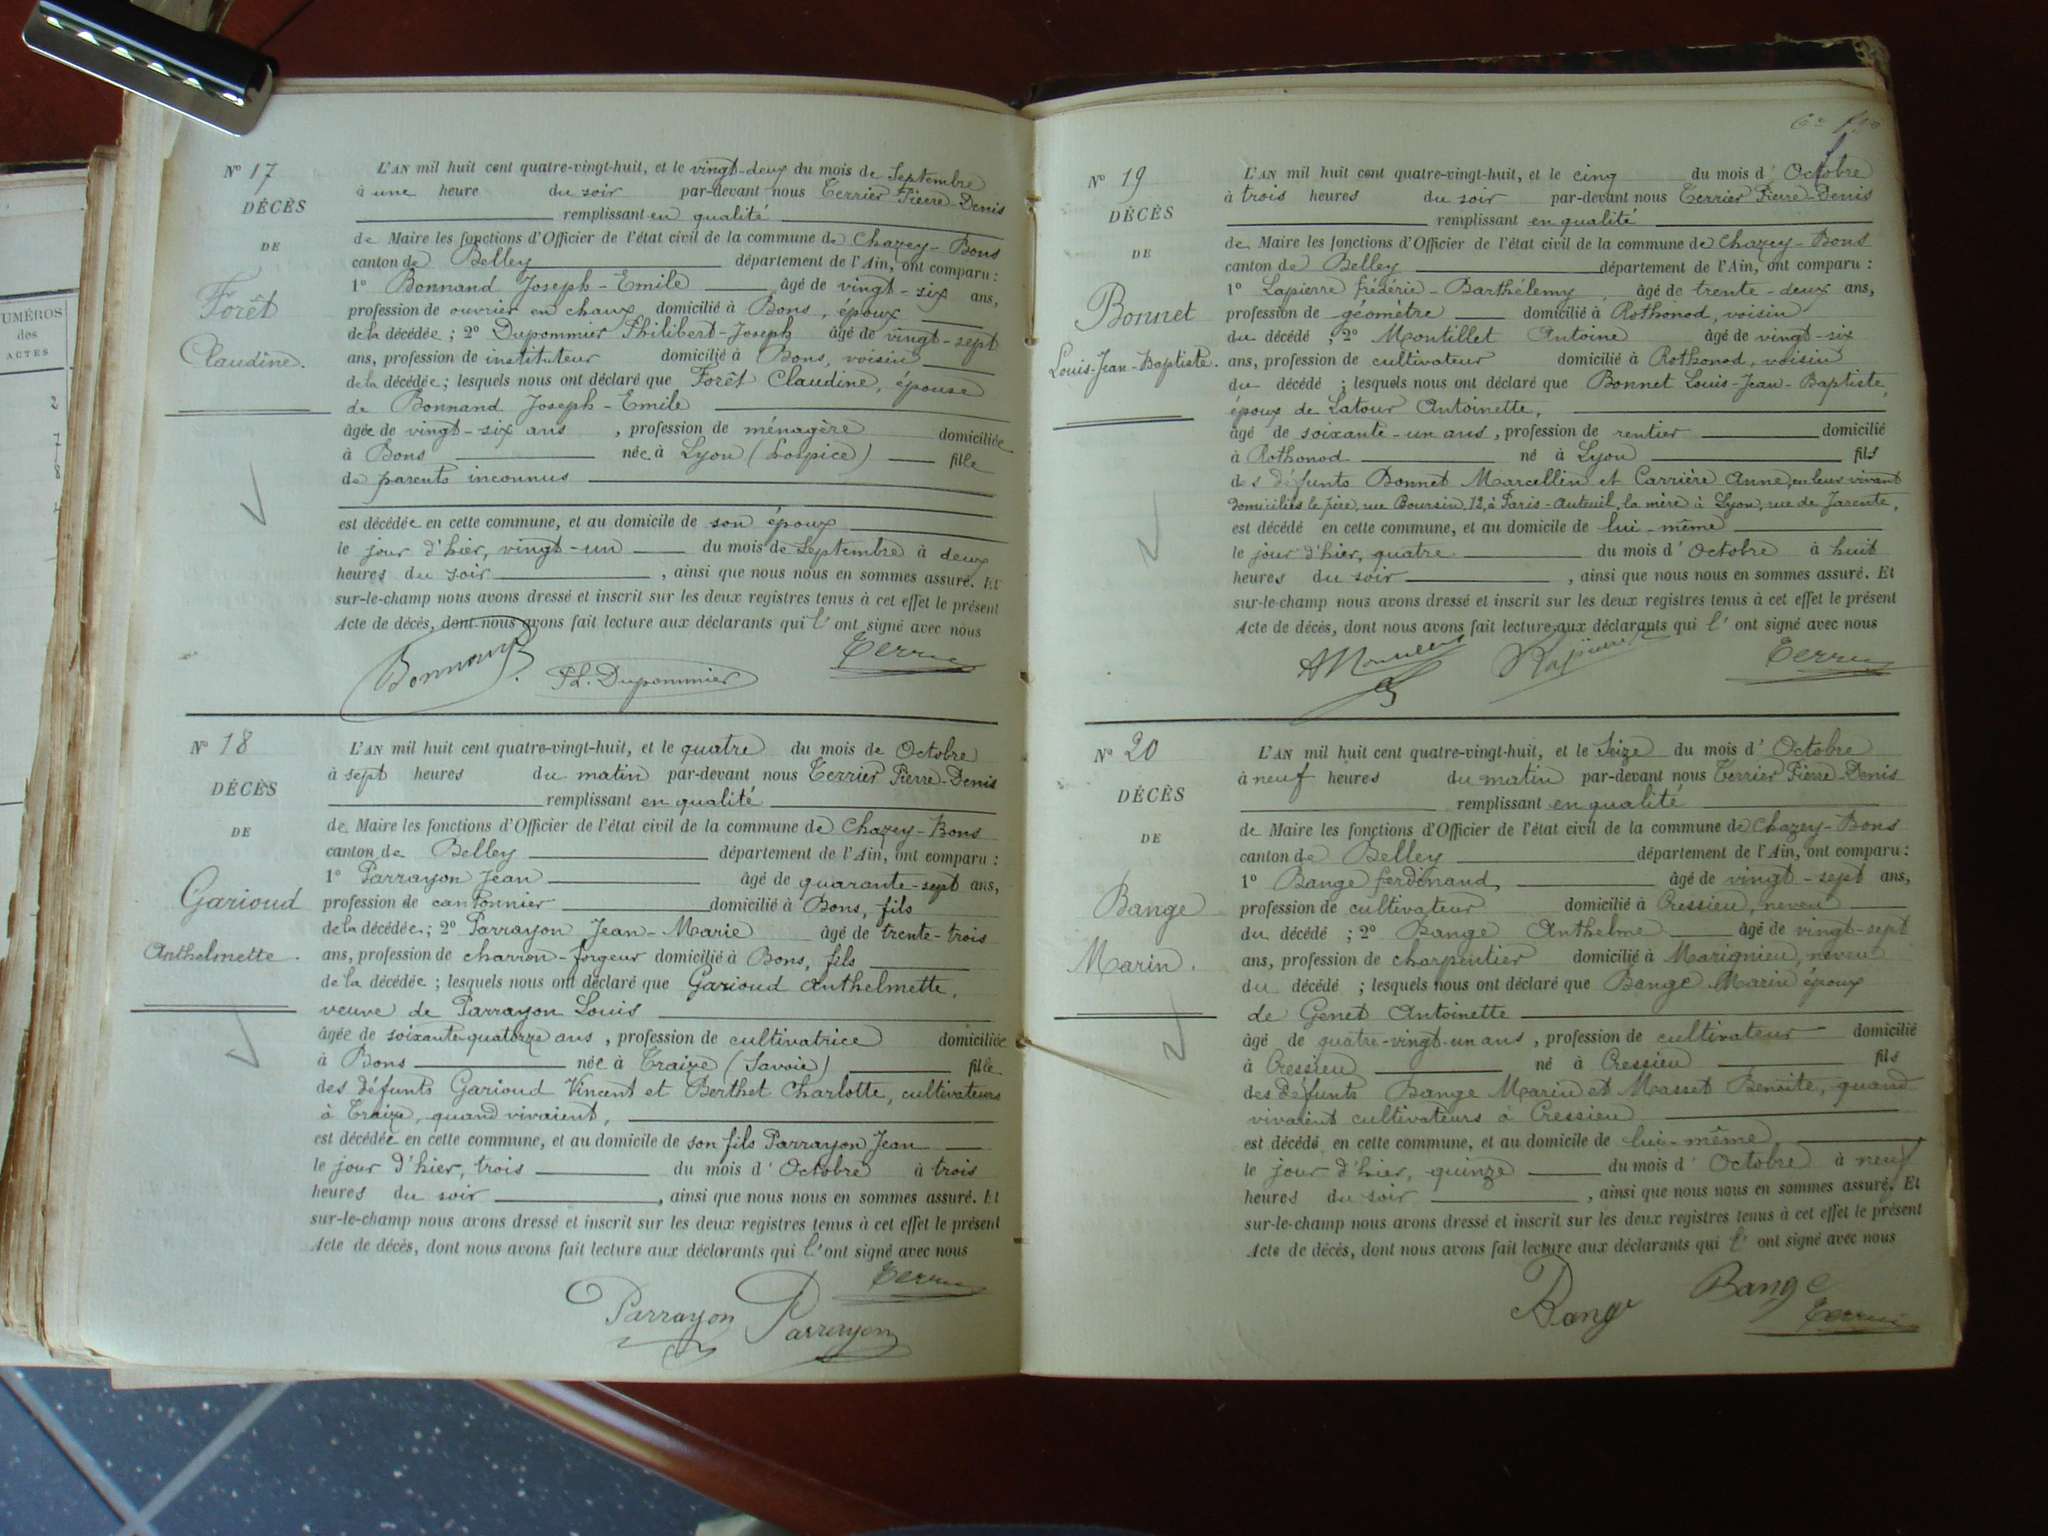 NUMÉROS
des
ACTES
2
7
8
Nº 17
DÉCÈS
DE
Forêt
Claudine.
L'AN mil huit cent quatre-vingt-huit, et le vingt-deux du mois de Septembre
à une heure du soir par-devant nous Terrier Pierre-Denis
remplissant en qualité
de Maire les fonctions d'Officier de l'état civil de la commune de Chazey-Bons
canton de Belley département de l'Ain, ont comparu :
1º Bonnand Joseph-Emile âgé de vingt-six ans,
profession de ouvrier en chaux domicilié à Bons, époux
de la décédée ; 2º Dupommier Philibert-Joseph âgé de vingt-sept
ans, profession de instituteur domicilié à Bons, voisin
de la décédée ; lesquels nous ont déclaré que Forêt Claudine, épouse
de Bonnand Joseph-Emile
âgée de vingt-six ans, profession de ménagère domiciliée
à Bons née à Lyon (hospice) fille
de parents inconnus
est décédée en cette commune, et au domicile de son époux
le jour d'hier, vingt-un du mois de Septembre à deux
heures du soir, ainsi que nous nous en sommes assuré. Et
sur-le-champ nous avons dressé et inscrit sur les deux registres tenus à cet effet le présent
Acte de décès, dont nous avons fait lecture aux déclarants qui l'ont signé avec nous
Bonnand Ph. Dupommier Terrier
Nº 18
DÉCÈS
DE
Garioud
Anthelmette.
L'AN mil huit cent quatre-vingt-huit, et le quatre du mois de Octobre
à sept heures du matin par-devant nous Terrier Pierre-Denis
remplissant en qualité
de Maire les fonctions d'Officier de l'état civil de la commune de Chazey-Bons
canton de Belley département de l'Ain, ont comparu :
1º Parrayon Jean âgé de quarante-sept ans,
profession de cantonnier domicilié à Bons, fils
de la décédée ; 2º Parrayon Jean-Marie âgé de trente-trois
ans, profession de charron-forgeur domicilié à Bons, fils
de la décédée ; lesquels nous ont déclaré que Garioud Anthelmette,
veuve de Parrayon Louis
âgée de soixante-quatorze ans, profession de cultivatrice domiciliée
à Bons née à Traize (Savoie) fille
des défunts Garioud Vincent et Berthet Charlotte, cultivateurs
à Traize, quand vivaient,
est décédée en cette commune, et au domicile de son fils Parrayon Jean
le jour d'hier, trois du mois d'Octobre à trois
heures du soir, ainsi que nous nous en sommes assuré. Et
sur-le-champ nous avons dressé et inscrit sur les deux registres tenus à cet effet le présent
Acte de décès, dont nous avons fait lecture aux déclarants qui l'ont signé avec nous
Terrier
Parrayon Parrayon
Nº 19
DÉCÈS
DE
Bonnet
Louis-Jean-Baptiste.
L'AN mil huit cent quatre-vingt-huit, et le cinq du mois d'Octobre
à trois heures du soir par-devant nous Terrier Pierre-Denis
remplissant en qualité
de Maire les fonctions d'Officier de l'état civil de la commune de Chazey-Bons
canton de Belley département de l'Ain, ont comparu :
1º Lapierre frédéric-Barthélemy âgé de trente-deux ans,
profession de géomètre domicilié à Rothonod, voisin
du décédé ; 2º Montillet Antoine âgé de vingt-six
ans, profession de cultivateur domicilié à Rothonod, voisin
du décédé ; lesquels nous ont déclaré que Bonnet Louis-Jean-Baptiste,
époux de Latour Antoinette,
âgé de soixante-un ans, profession de rentier domicilié
à Rothonod né à Lyon fils
des défunts Bonnet Marcellin et Carrière Anne, en leur vivant
domiciliés le père, rue Boursin, 12, à Paris-Auteuil, la mère à Lyon, rue de Jarente,
est décédé en cette commune, et au domicile de lui-même
le jour d'hier, quatre du mois d'Octobre à huit
heures du soir, ainsi que nous nous en sommes assuré. Et
sur-le-champ nous avons dressé et inscrit sur les deux registres tenus à cet effet le présent
Acte de décès, dont nous avons fait lecture aux déclarants qui l'ont signé avec nous
Terrier
Nº 20
DÉCÈS
DE
Bange
Marin.
L'AN mil huit cent quatre-vingt-huit, et le Seize du mois d'Octobre
à neuf heures du matin par-devant nous Terrier Pierre-Denis
remplissant en qualité
de Maire les fonctions d'Officier de l'état civil de la commune de Chazey-Bons
canton de Belley département de l'Ain, ont comparu :
1º Bange ferdinand, âgé de vingt-sept ans,
profession de cultivateur domicilié à Cressieu, neveu
du décédé ; 2º Bange Anthelme âgé de vingt-sept
ans, profession de charpentier domicilié à Marignieu, neveu
du décédé ; lesquels nous ont déclaré que Bange Marin époux
de Genet Antoinette
âgé de quatre-vingt-un ans, profession de cultivateur domicilié
à Cressieu né à Cressieu fils
des défunts Bange Marin et Masset Benoite, quand
vivaient cultivateurs à Cressieu
est décédé en cette commune, et au domicile de lui-même,
le jour d'hier, quinze du mois d'Octobre à neuf
heures du soir, ainsi que nous nous en sommes assuré. Et
sur-le-champ nous avons dressé et inscrit sur les deux registres tenus à cet effet le présent
Acte de décès, dont nous avons fait lecture aux déclarants qui l'ont signé avec nous
Bange Bange
Terrier